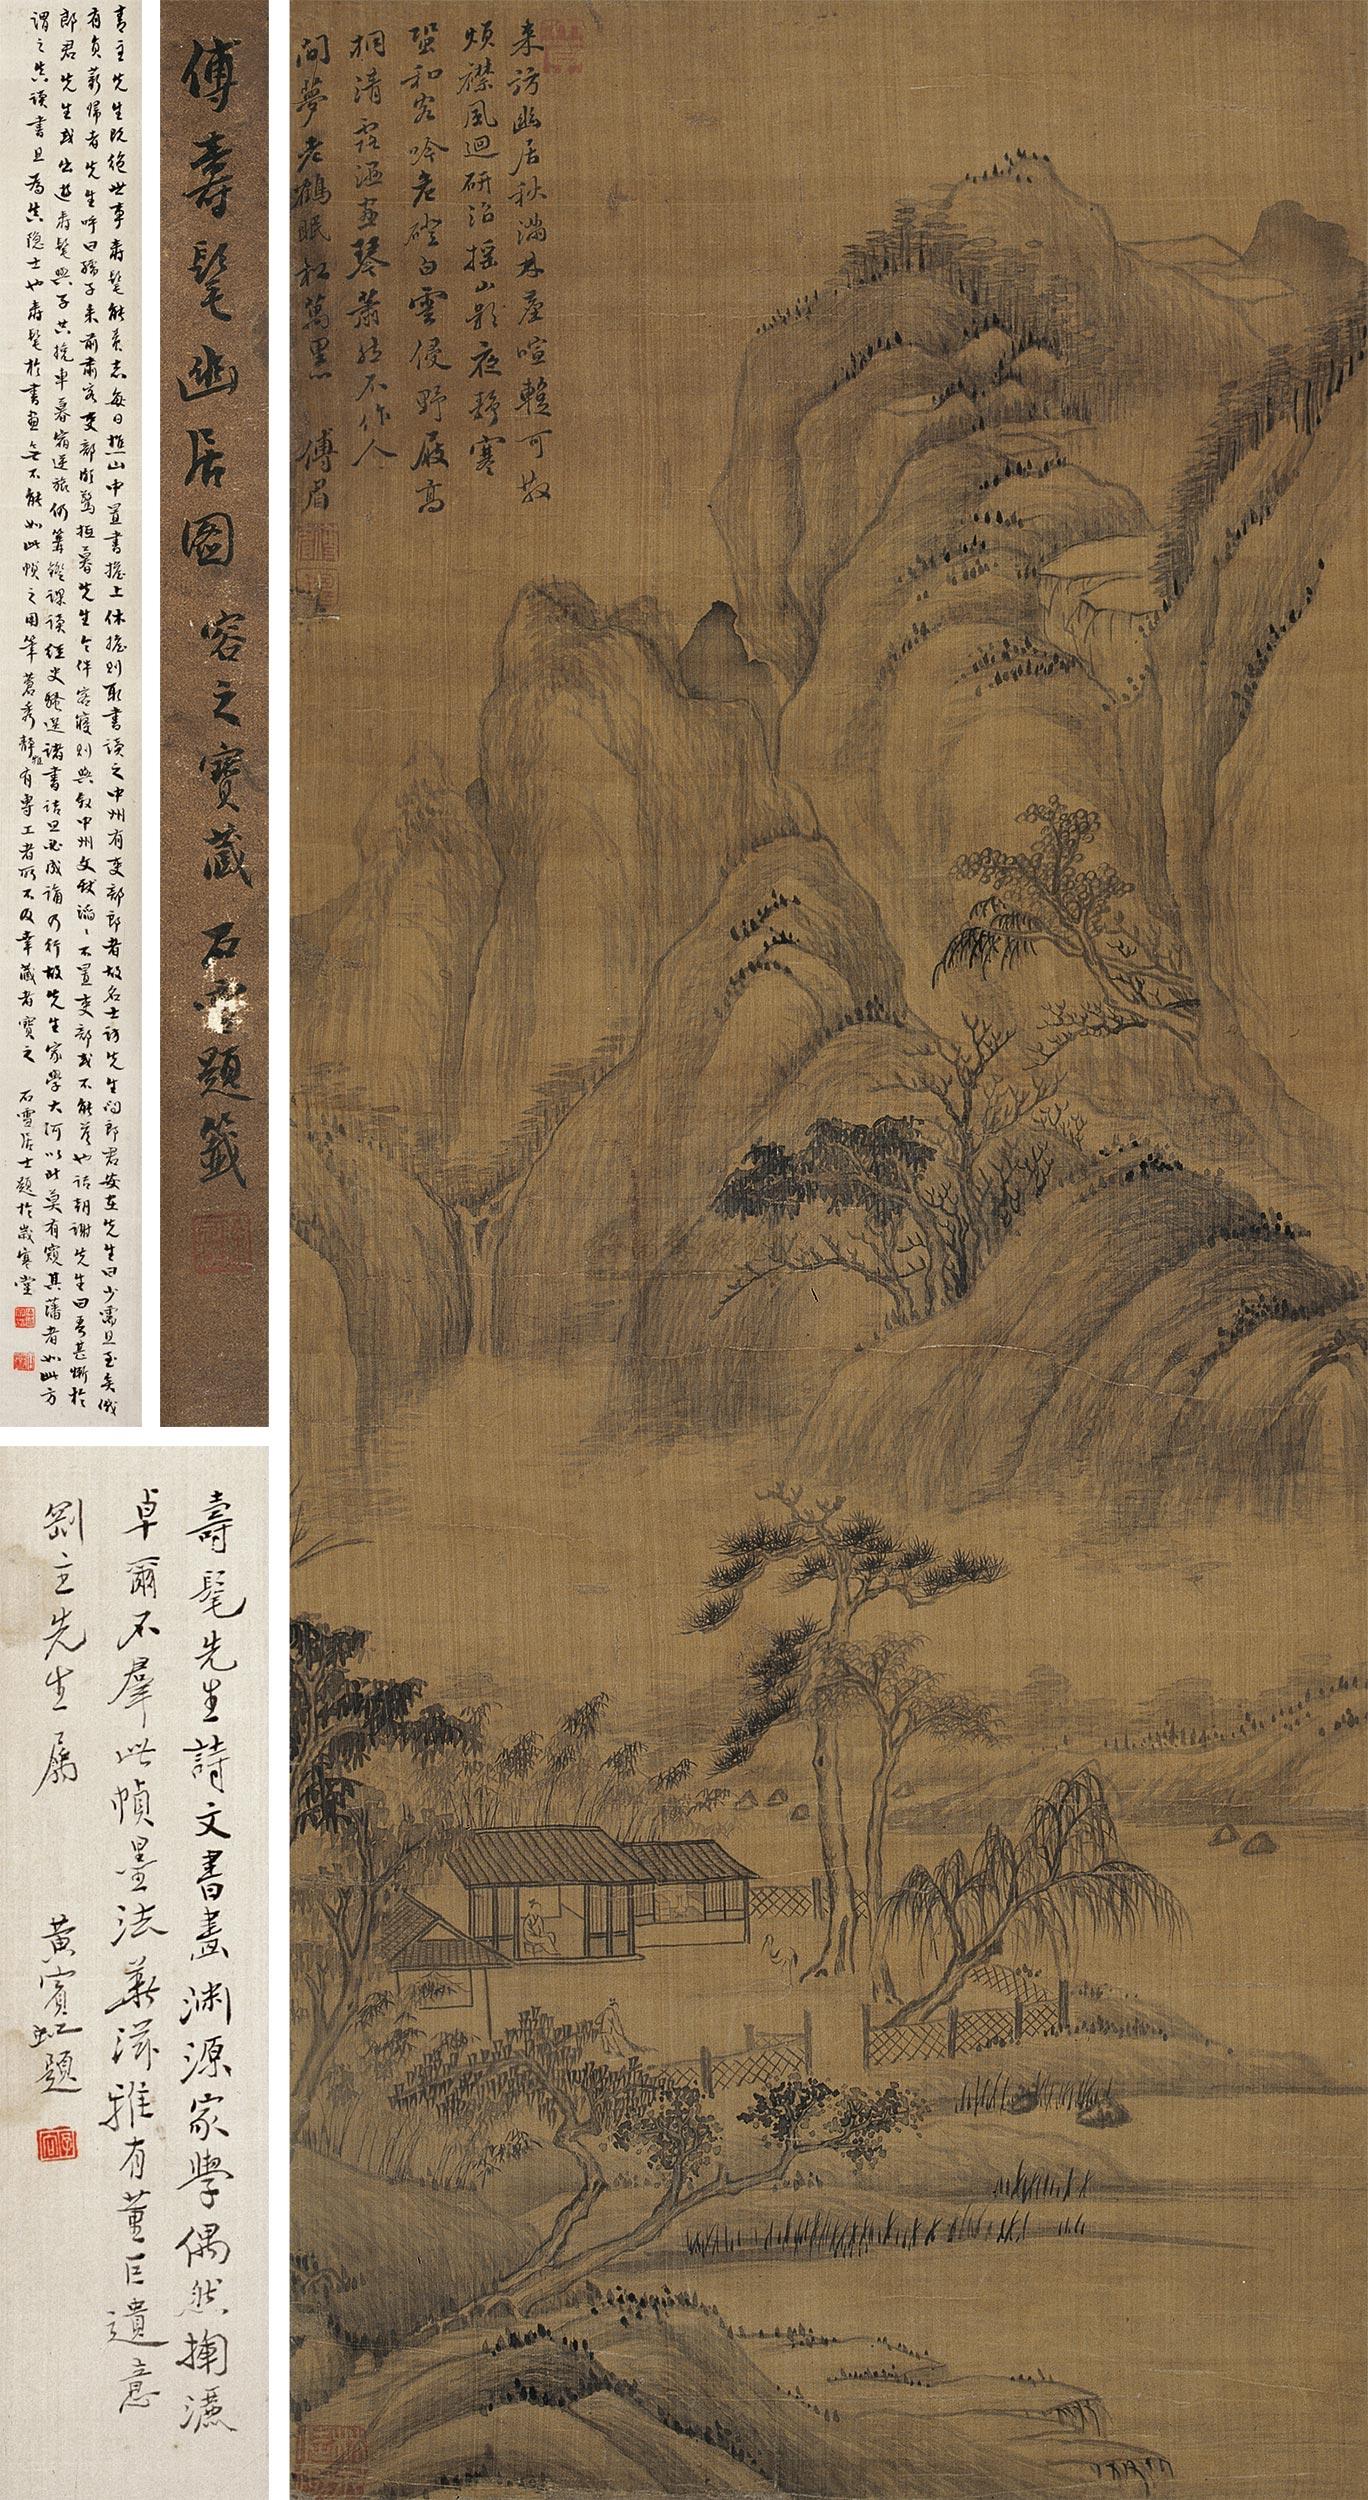 来访幽居秋满林塵喧暫可散
煩襟風迴硏沼摇山影夜靜寒
蛩和客吟危磴白雲侵野屐高
桐清露溼畫琴蕭然不作人
间夢老鶴眠松萬里心
傅眉
傅壽髦幽居圖容之寶藏石雪題籤
青主先生既絶世事壽髦能養志每日樵山中置書擔上休擔則取書讀之中州有吏部郎者故名士訪先生问郎君安在先生曰少需且至矣俄
有負薪歸者先生呼曰孺子来前肅客吏部頗驚抵暮先生令伴客寢則與敘中州文獻滔滔不置吏部或不能答也詰朝謝先生曰吾甚慚於
郎君先生或出遊壽髦與子共挽車暮宿逆旅仍篝燈課讀經史騷選諸書詰旦必成誦乃行故先生家學大河以北莫有窺其藩者如此方
謂之真讀書且爲真隐士也壽髦於書畫無不能如此幀之用筆蒼秀靜雅有專工者所不及幸藏者寶之 石雪居士題於歲寒堂
壽髦先生詩文書畫淵源家學偶然揮灑
卓爾不羣此幀墨法華滋雅有董巨遺意
劍主先生屬 黄賓虹題